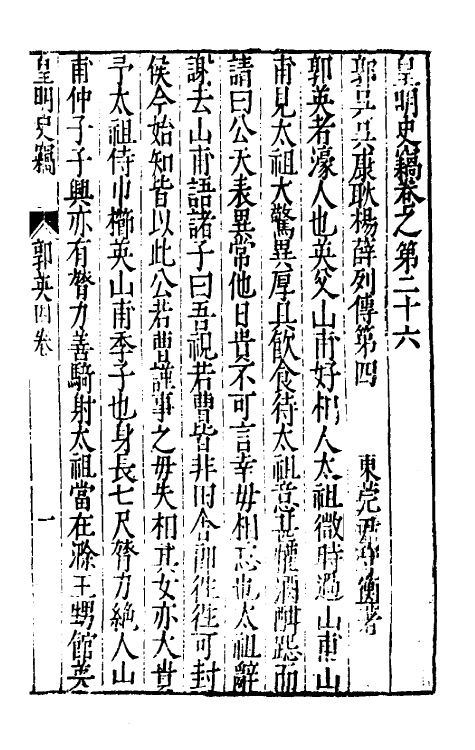 皇明史竊卷之第二十六
郭吳吳康耿楊薛列傳第四 東莞尹守衡著
郭英者濠人也英父山甫好相人太祖微時過山甫山
甫見太祖大驚異厚具飲食待太祖意甚懽酒酣跽而
請曰公天表異常他日貴不可言幸毋相忘也太祖辭
謝去山甫語諸子曰吾視若曹皆非田舍郎往往可封
侯今始知皆以此公若曹謹事之毋失相其女亦大貴
予太祖侍巾櫛英山甫季子也身長七尺膂力絕人山
甫仲子子興亦有膂力善騎射太祖當在滁王甥館英
皇明史竊 郭英四卷 一